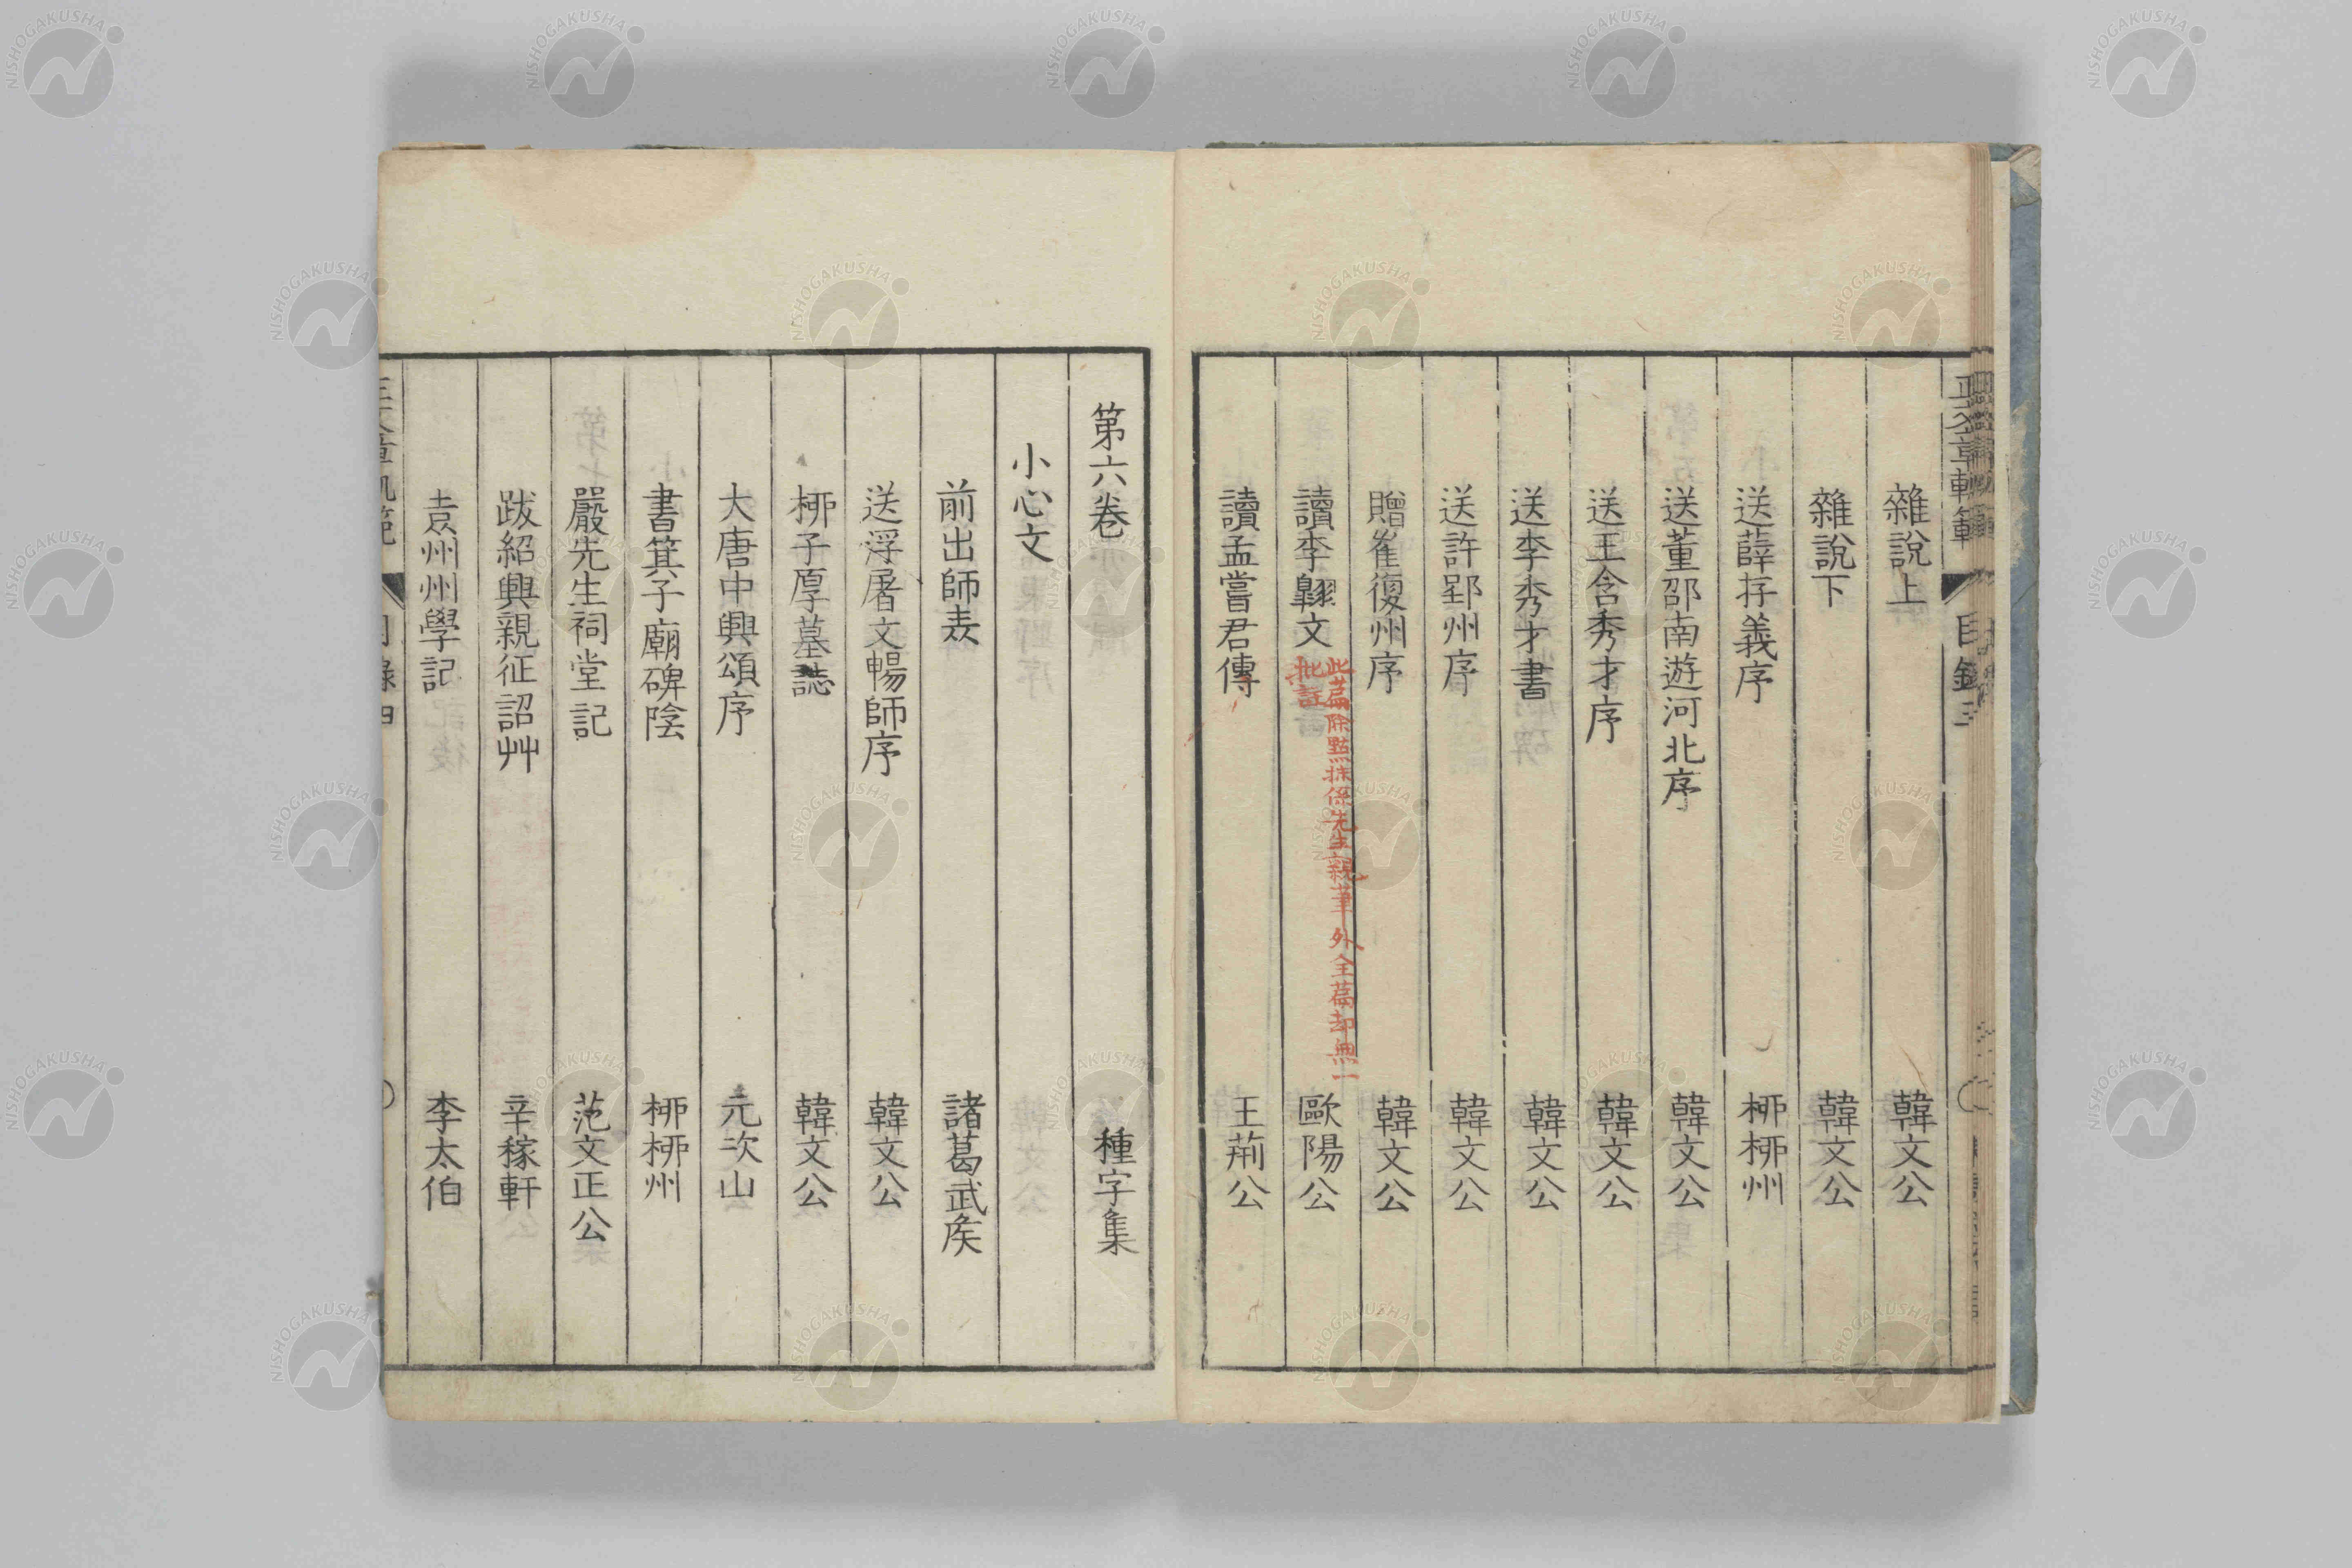 雜說上 韓文公
雜說下 韓文公
送薛存義序 柳柳州
送董邵南遊河北序 韓文公
送王含秀才序 韓文公
送李秀才書 韓文公
送許郢州序 韓文公
贈崔復州序 韓文公
讀李翺文 此篇除點抹係先生親筆外全篇却無一批註 歐陽公
讀孟嘗君傳 王荊公
第六卷 種字集
小心文
前出師表 諸葛武侯
送浮屠文暢師序 韓文公
柳子厚墓誌 韓文公
大唐中興頌序 元次山
書箕子廟碑陰 柳柳州
嚴先生祠堂記 范文正公
跋紹興親征詔艸 辛稼軒
袁州州學記 李太伯
NISHOGAKUSHA